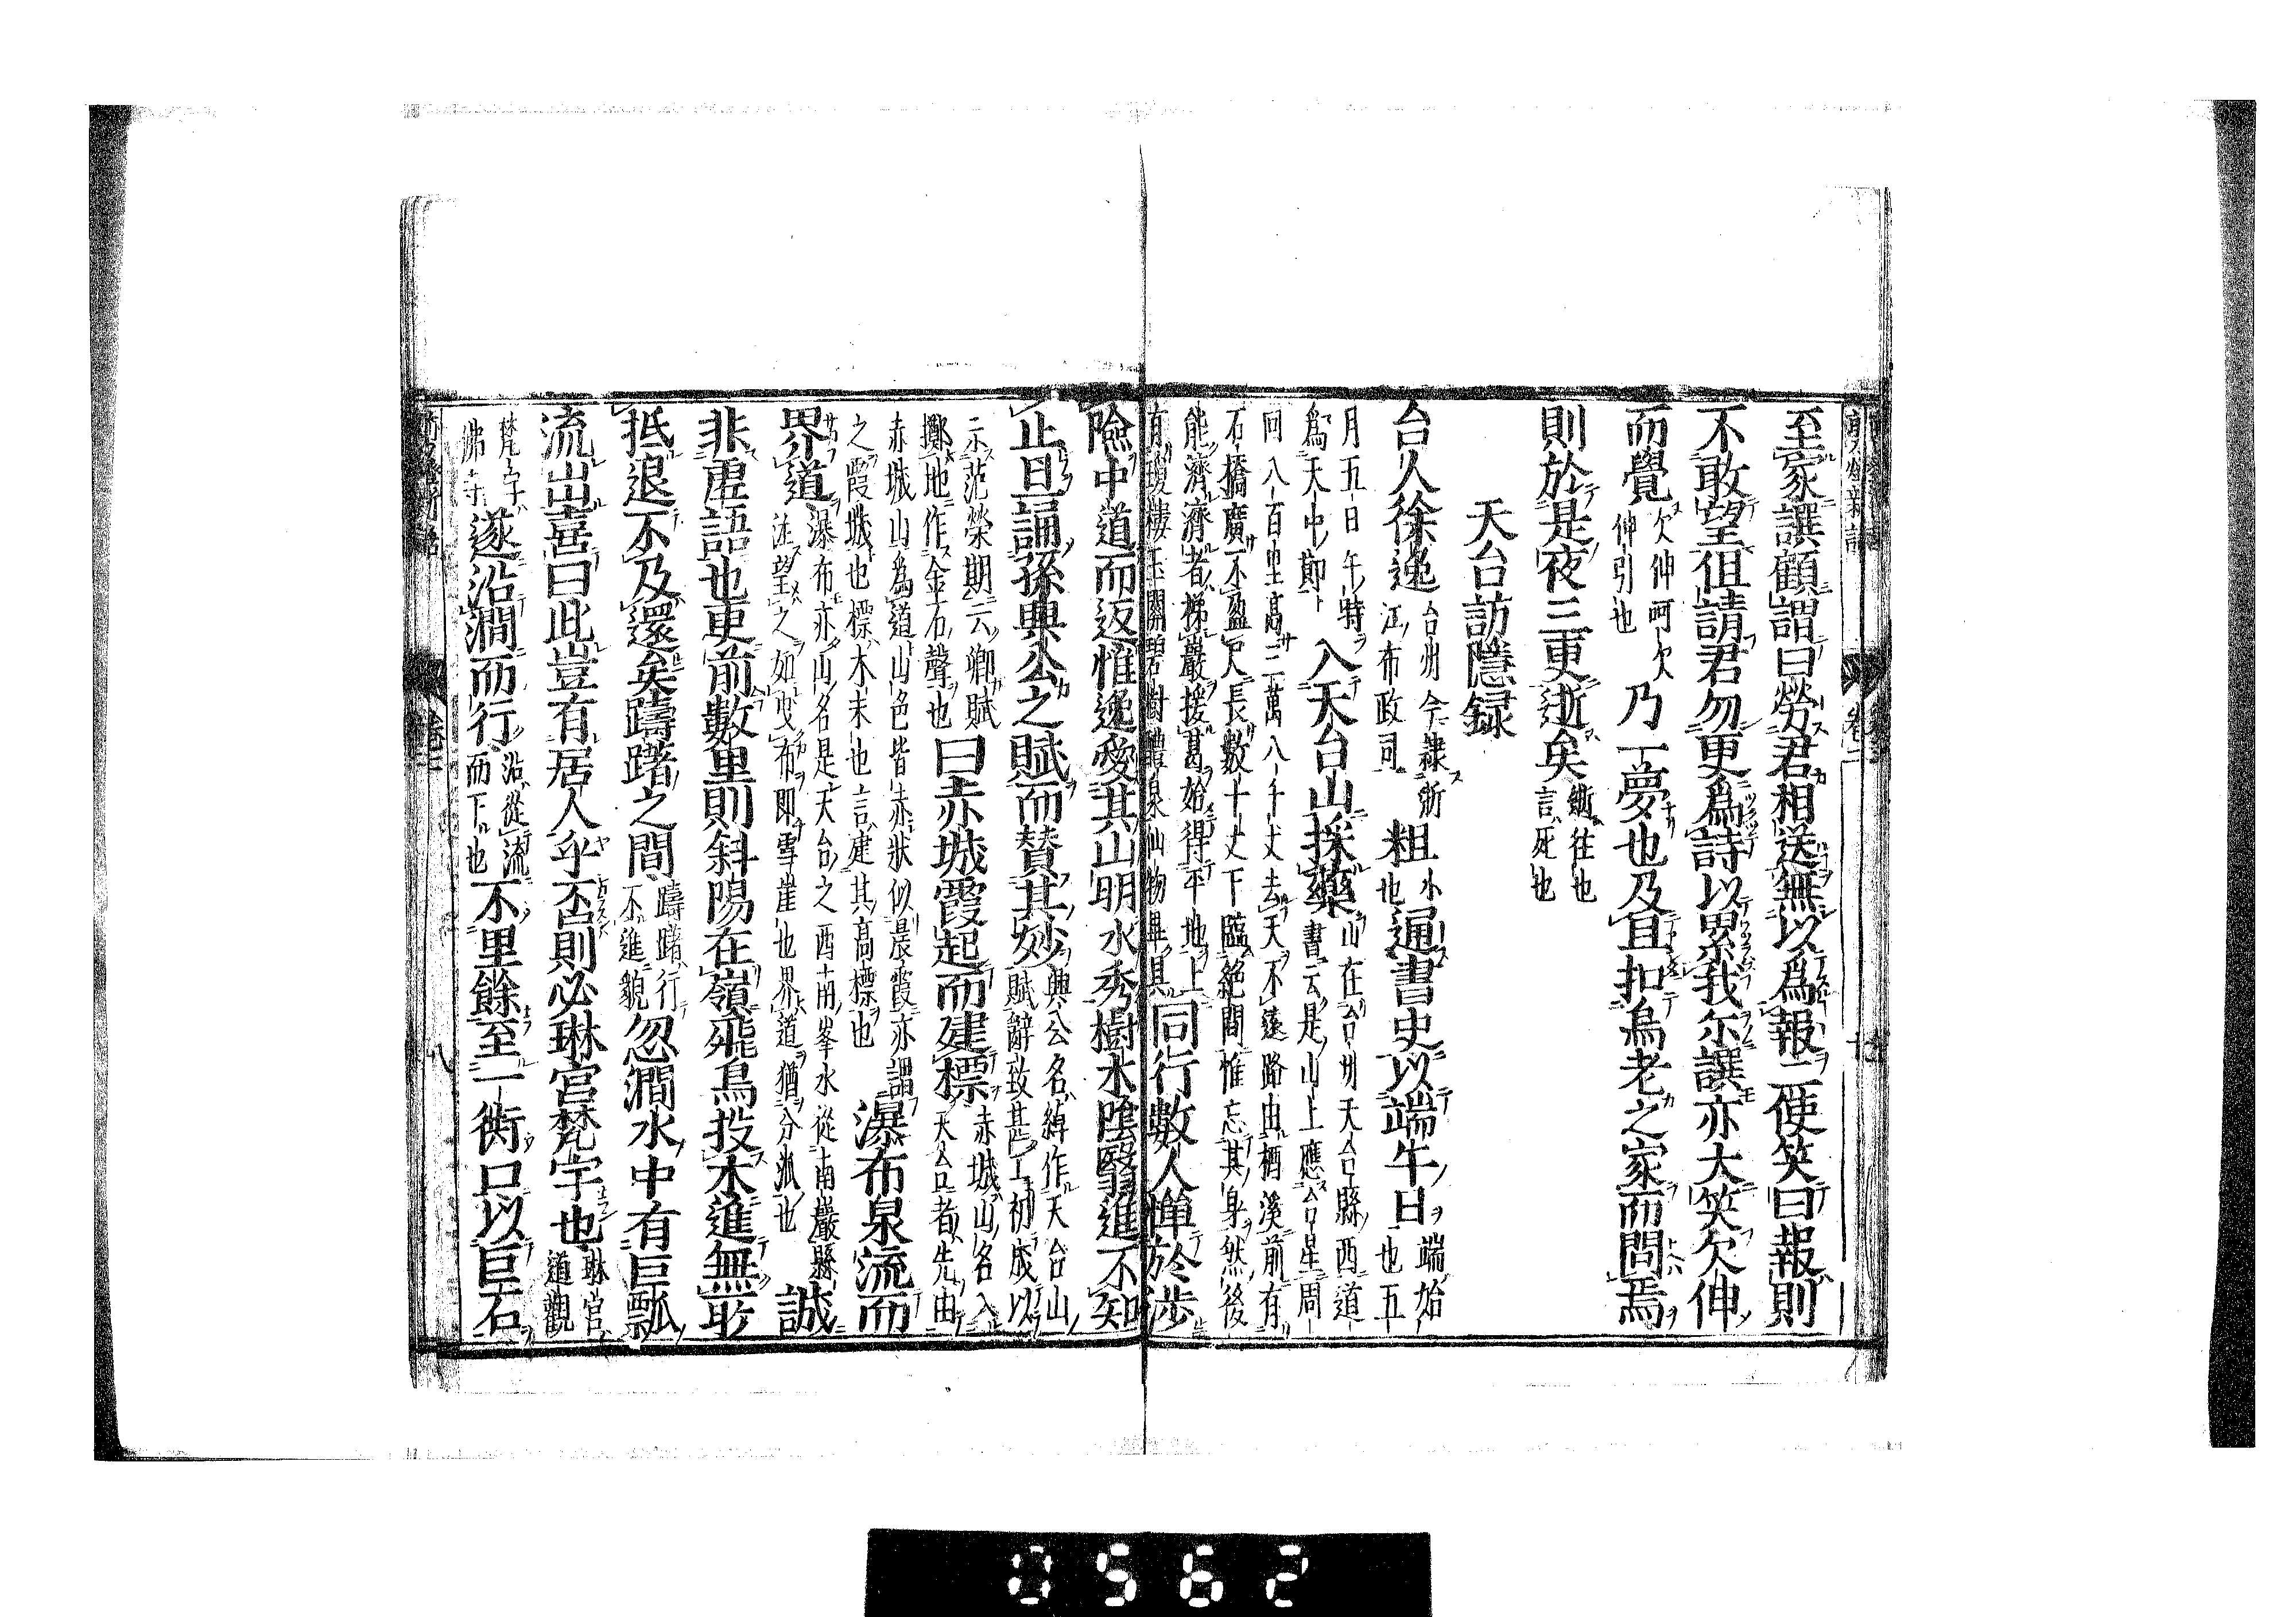 至家譔顧謂曰勞君相送無以爲報二使笑曰報則
不敢望但請君勿更爲詩以累我尓譔亦大笑欠伸
而覺欠伸呵欠
伸引也乃一夢也及旦扣烏老之家而問焉
則於是夜三更逝矣逝往也
言死也
天台訪隱録
台人徐逸台州今隷浙
江布政司粗小
也通書史以端午日端始
也五
月五日午時
爲天中節入天台山採藥山在台州天台縣西道
書云是山上應台星周
回八百里高一萬八千丈去天不遠路由栖溪前有
石橋廣不盈尺長數十丈下臨絶澗惟忘其身然後
能濟濟者梯巖援葛始得平地上
有瓊樓玉闕碧樹醴泉仙物畢具同行數人憚於渉
險中道而返惟逸愛其山明水秀樹木陰翳進不知
止且誦孫興公之賦而賛其妙興公名綽作天台山
賦辭致甚工初成以
示范榮期云卿賦
擲地作金石聲也曰赤城霞起而建標赤城山名入
天台者先由
赤城山爲道山色皆赤狀似晨霞亦謂
之霞城也標木末也言建其高標也瀑布泉流而
界道瀑布亦山名是天台之西南峯水從南巖縣
注望之如曳布即雪崖也界道猶分派也誠
非虚語也更前數里則斜陽在嶺飛鳥投木進無所
抵退不及還矣躊躇之間躊躇行
不進貌忽澗水中有巨瓢
流出喜曰此豈有居人乎否則必琳宮梵宇也琳宮
道觀
梵宇
佛寺遂沿澗而行沿從流
而下也不里餘至一衖口以巨石
新語
卷二
八
0562